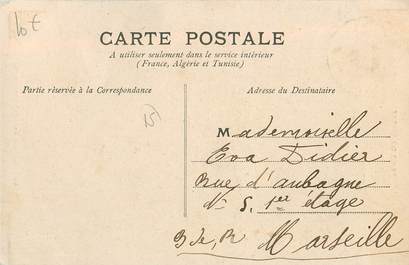 10 €
CARTE POSTALE
A utiliser seulement dans le service intérieur
(France, Algérie et Tunisie)
Partie réservée à la Correspondance
Adresse du Destinataire
15
Mademoiselle
Eva Didier
Rue d'aubagne
N° 5. 1er étage
B de R Marseille